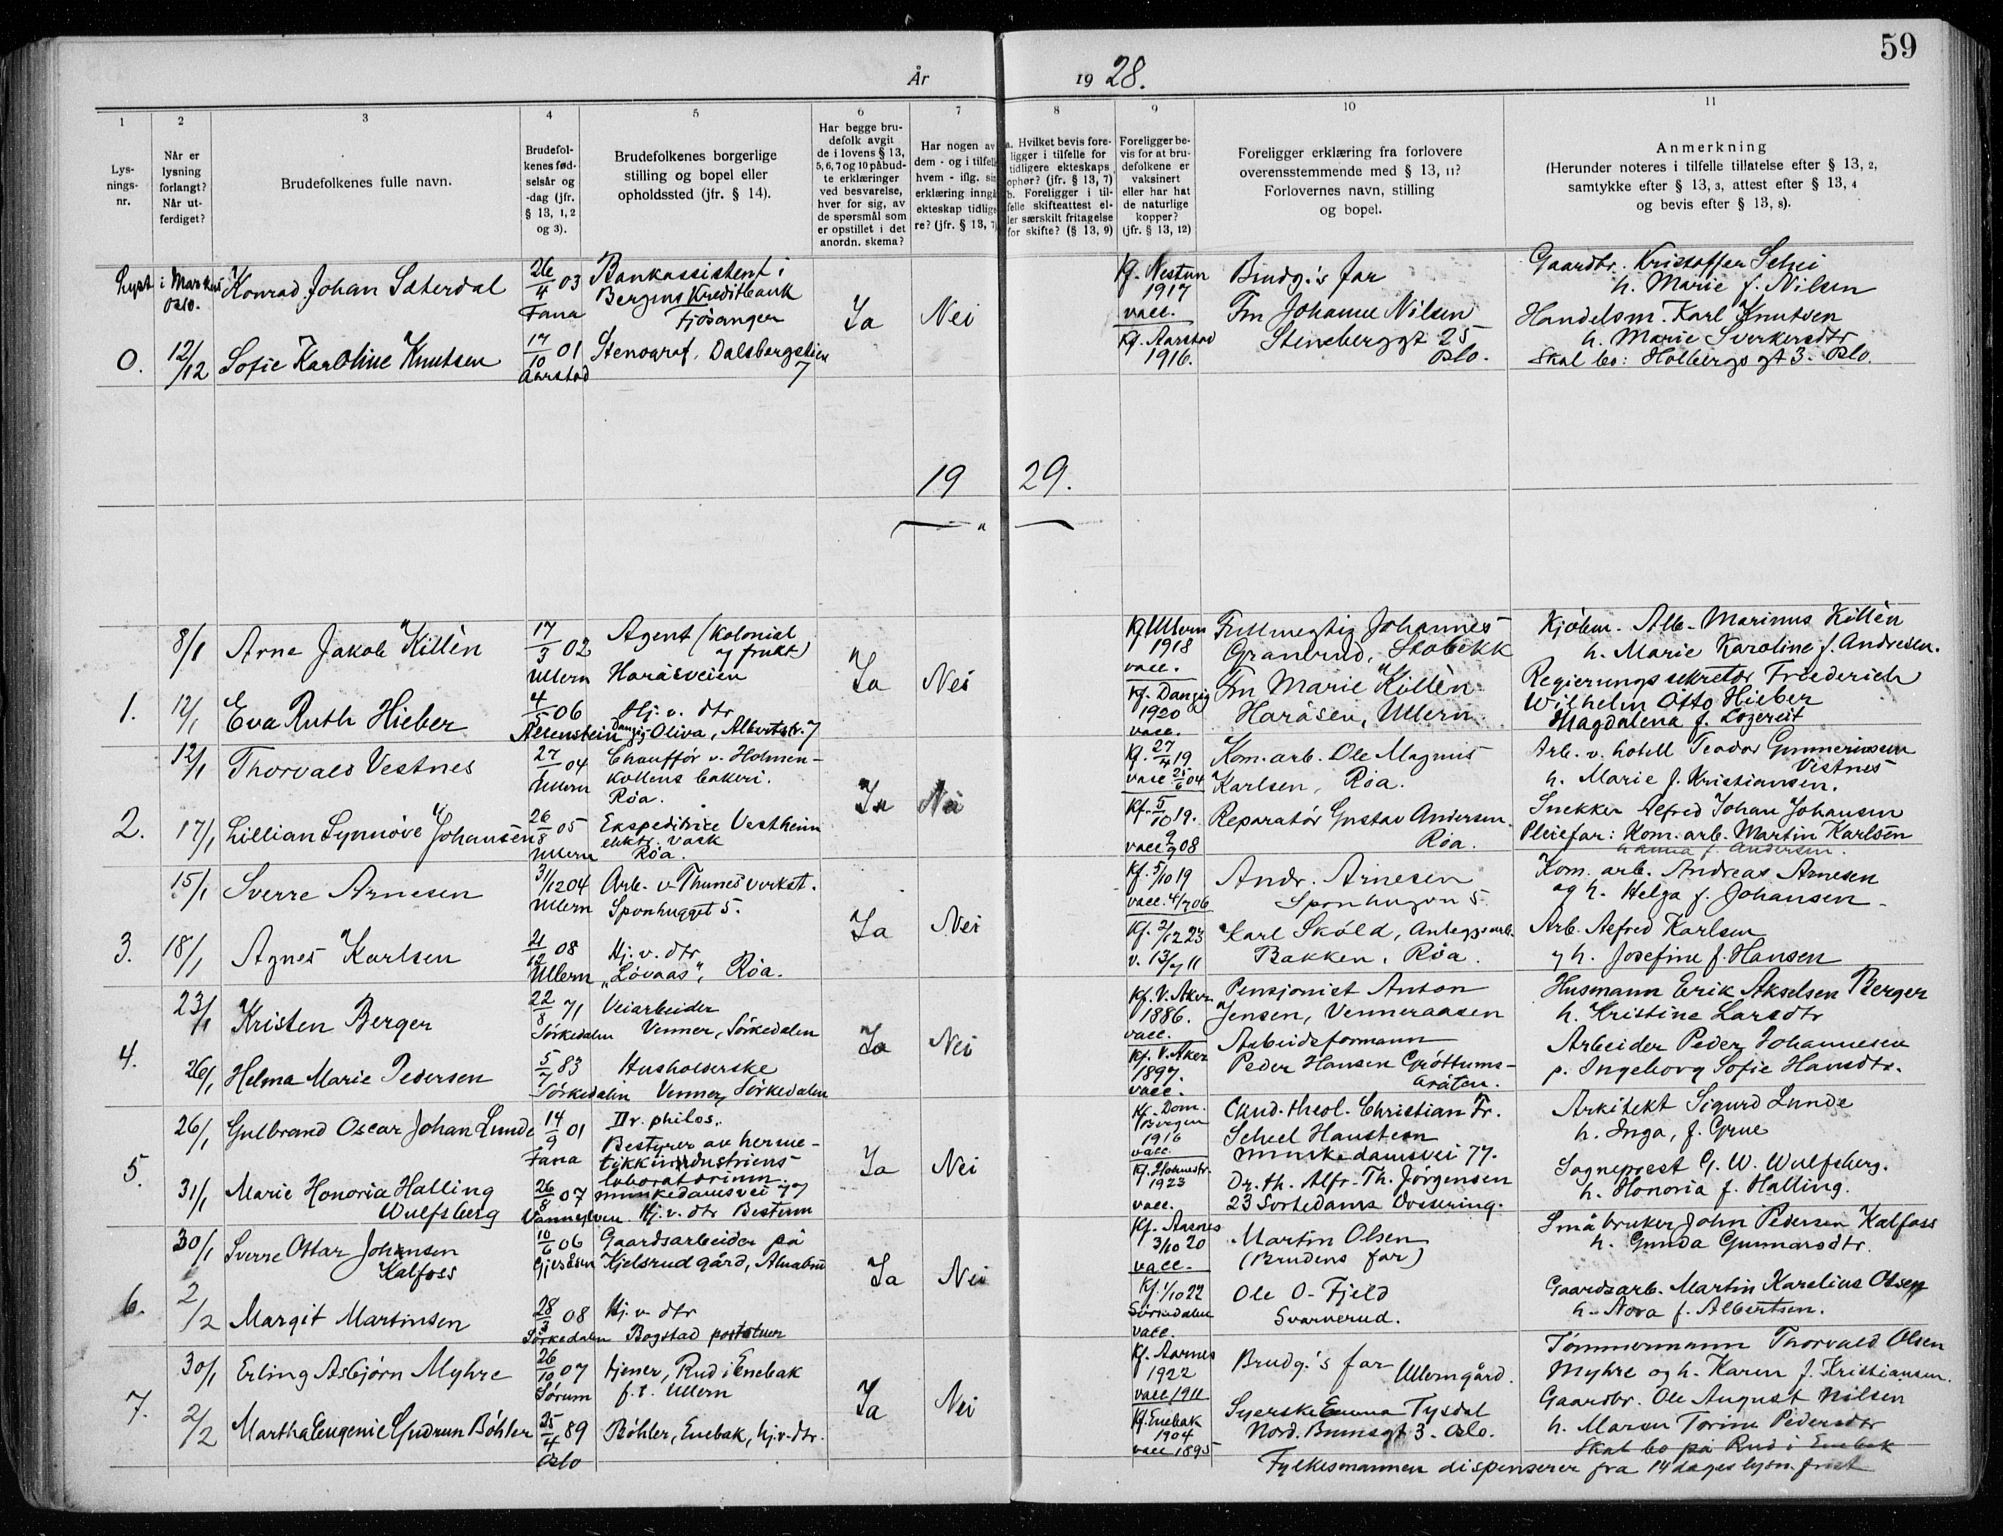 59
År 1928.
1 2 3 4 5 6 7 8 9 10 11
Lys-
nings-
nr.
Når er
lysning
forlangt?
Når ut-
ferdiget?
Brudefolkenes fulle navn.
Brudefol-
kenes fød-
selsår og
-dag (jfr.
§ 13, 1, 2
og 3).
Brudefolkenes borgerlige
stilling og bopel eller
opholdssted (jfr. § 14).
Har begge bru-
defolk avgit
de i lovens § 13,
5, 6, 7 og 10 påbud-
te erklæringer
ved besvarelse,
hver for sig, av
de spørsmål som
er opstillet i det
anordn. skema?
Har nogen av
dem - og i tilfelle
hvem - iflg. sin
erklæring inngå
ekteskap tidlige
re? (jfr. § 13, 7)
a. Hvilket bevis fore-
ligger i tilfelle for
tidligere ekteskaps
ophør? (jfr. § 13, 7)
b. Foreligger i til-
felle skifteattest el-
ler særskilt fritagelse
for skifte? (§ 13, 9)
Foreligger be-
vis for at bru-
defolkene er
vaksinert
eller har hat
de naturlige
kopper?
(jfr. § 13, 12)
Foreligger erklæring fra forlovere
overensstemmende med § 13, 11?
Forlovernes navn, stilling
og bopel.
Anmerkning
(Herunder noteres i tilfelle tillatelse efter § 13, 2,
samtykke efter § 13, 3, attest efter § 13, 4
og bevis efter § 13, 8).
Lyst i Markus
Oslo.
Konrad Johan Sæterdal
26/4 03
Fana
Bankassistent i
Bergens Kreditbank
Fjøsanger
Ja
Nei
Kf. Nestun
1917
vacc.
Brudg.'s far
Gaardbr. Kristoffer
h. Marie f. Nilsen
0.
12/12
Sofie Karoline Knutsen
17/10 01
Aarstad
Stenograf, Dalsbergstien
7
Kf. Aarstad
1916.
Fru Johanne Nilsen
Stensberggt 25
Oslo.
Handelsm. Karl Knutsen
h. Marie Sverkersdtr
Skal bo: Holbergs gt 3. Oslo.
1929.
1.
8/1
Arne Jakob Killèn
17/3 02
Ullern
Agent (Kolonial
og frukt)
Haråsveien
Ja
Nei
Kf Ullern
1918
vacc.
Fullmegtig Johannes
Granerud, Stabekk
Kjøbm. Alb. Marinus Killèn
h. Marie Karoline f. Andresen.
12/1
Eva Ruth Hieber
4/5 06
Allenstein
Hj. v. dtr
Danzig-Oliva, Albertstr. 7
Kf. Danzig
1920
vacc.
Fru Marie Killèn
Haråsen, Ullern
Regierungssekretär Friederich
Wilhelm Otto Hieber
Magdalena f. Lozereit
2.
12/1
Thorvald Vestnes
27/1 04
Ullern
Chauffør v. Holmen-
kollens bakeri.
Røa.
Ja
Nei
Kf. 27/4 19
vacc 25/6 04
Kom. arb. Ole Magnus
Karlsen, Røa.
Arb. v. hotell Teodor Gunneriussen
Vestnes
h. Marie f. Kristiansen.
17/1
Lillian Synnøve Johansen
26/8 05
Ullern
Ekspeditrice Vestheim
elektr. vask
Røa.
Kf. 5/10 19.
vacc 2/9 08
Reparatør Gustav Andersen.
Røa.
Snekker Alfred Johan Johansen
Pleiefar: Kom. arb. Martin Karlsen
h Anna f. Andersen.
3.
15/1
Sverre Arnesen
31/12 04
Ullern
Arb. v Thunes verkst.
Sponhugget 5.
Ja
Nei
Kf. 5/10 19
vacc. 4/7 06
Andr. Arnesen
Sponhugun 5
Kom. arb. Andreas Arnesen
og h. Helga f. Johansen
18/1
Agnes Karlsen
21/12 08
Ullern
Hj. v. dtr
„Løvaas“, Røa.
Kf. 2/12 23
v. 13/7 11
Karl Sköld, Anlegsarb.
Bakken, Røa.
Arb. Alfred Karlsen
og h. Josefine f. Hansen
4.
23/1
Kristen Berger
22/8 71
Sørkedalen
Veiarbeider
Venner, Sørkedalen
Ja
Nei
Kf. V. Aker
1886.
vacc.
Pensjonist Anton
Jensen, Venneraasen
Husmann Erik Akselsen Berger
h. Kristine Larsdtr
26/1
Helma Marie Pedersen
5/7 83
Sørkedalen
Husholderske
Venner, Sørkedalen
Kf. V. Aker
1897.
vacc.
Arbeidsformann
Peder Hansen Grøttums-
bråten.
Arbeider Peder Johannesen
p. Ingeborg Sofie Hansdtr.
5.
26/1
Gulbrand Oscar Johan Lunde
14/9 01
Fana
Dr. philos.
Bestyrer av herme-
tikkindustriens
laboratorium.
Munkedamsvei 77
Ja
Nei
Kf. Dom.
Bergen
1916
vacc.
Cand. theol. Christian Fr.
Scheel Haustein
Munkedamsvei 77.
Arkitekt Sigurd Lunde
h. Inga, f. Grue
31/1
Marie Honoria Halling
Wulfsberg
26/8 07
Vannelven
Hj. v. dtr Bestum
1923
vacc.
Dr. th. Alfr. Th. Jørgensen
23 Sortedams Dossering.
Sogneprest G. W. Wulfsberg.
h. Honoria f. Halling.
6.
30/1
Sverre Ottar Johansen
Kalfoss
10/6 06
Gjerdsen
Gaardsarbeider på
Kjelsrud gård, Alnabru
Ja
Nei
Kf. Aarnes
3/10 20
vacc.
Martin Olsen
(Brudens far)
Småbruker John Pedersen Kalfoss
h. Gunda Gunnarsdtr.
2/2
Margit Martinsen
28/3 08
Sørkedalen
Hj. v. dtr
Bogstad portstuen
Kf. 1/10 22
Sørkedalen
vacc.
Ole O. Fjeld
Svarverud.
Gaardsarb. Martin Karelius Olsen
h. Nora f. Albertsen.
7.
30/1
Erling Asbjørn Myhre
26/10 07
Sørum
tjener, Rud i Enebak
f. t. Ullern
Ja
Nei
Kf. Aarnes
1922
vacc 1911
Brudg.'s far Ullerngård.
Tømmermann Thorvald Olsen
Myhre og h. Karen f. Kristiansen.
2/2
Martha Eugenie Gudrun Böhler
25/4 89
Oslo
Böhler, Enebak, hj.v.dtr.
Kf. Enebak
1904
vacc 1895
Syerske Emma Tysdal
Nord. Brunsgt 3. Oslo.
Gaardbr. Ole August Nilsen
h. Maren Torine Pedersdtr
Skal bo på Rud i Enebak
Fylkesmannen dispenserer fra 14 dages lysn. frist